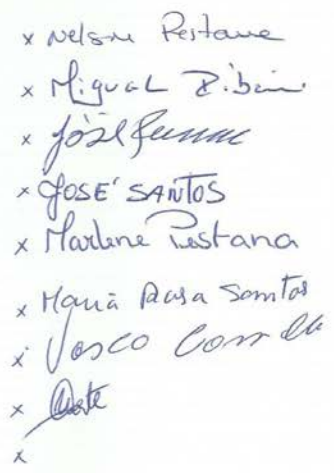 x Nelson Pestana
x Miguel
x José
x JOSÉ SANTOS
x Marlene Pestana
x Maria Rosa Santos
x Vasco
x
x